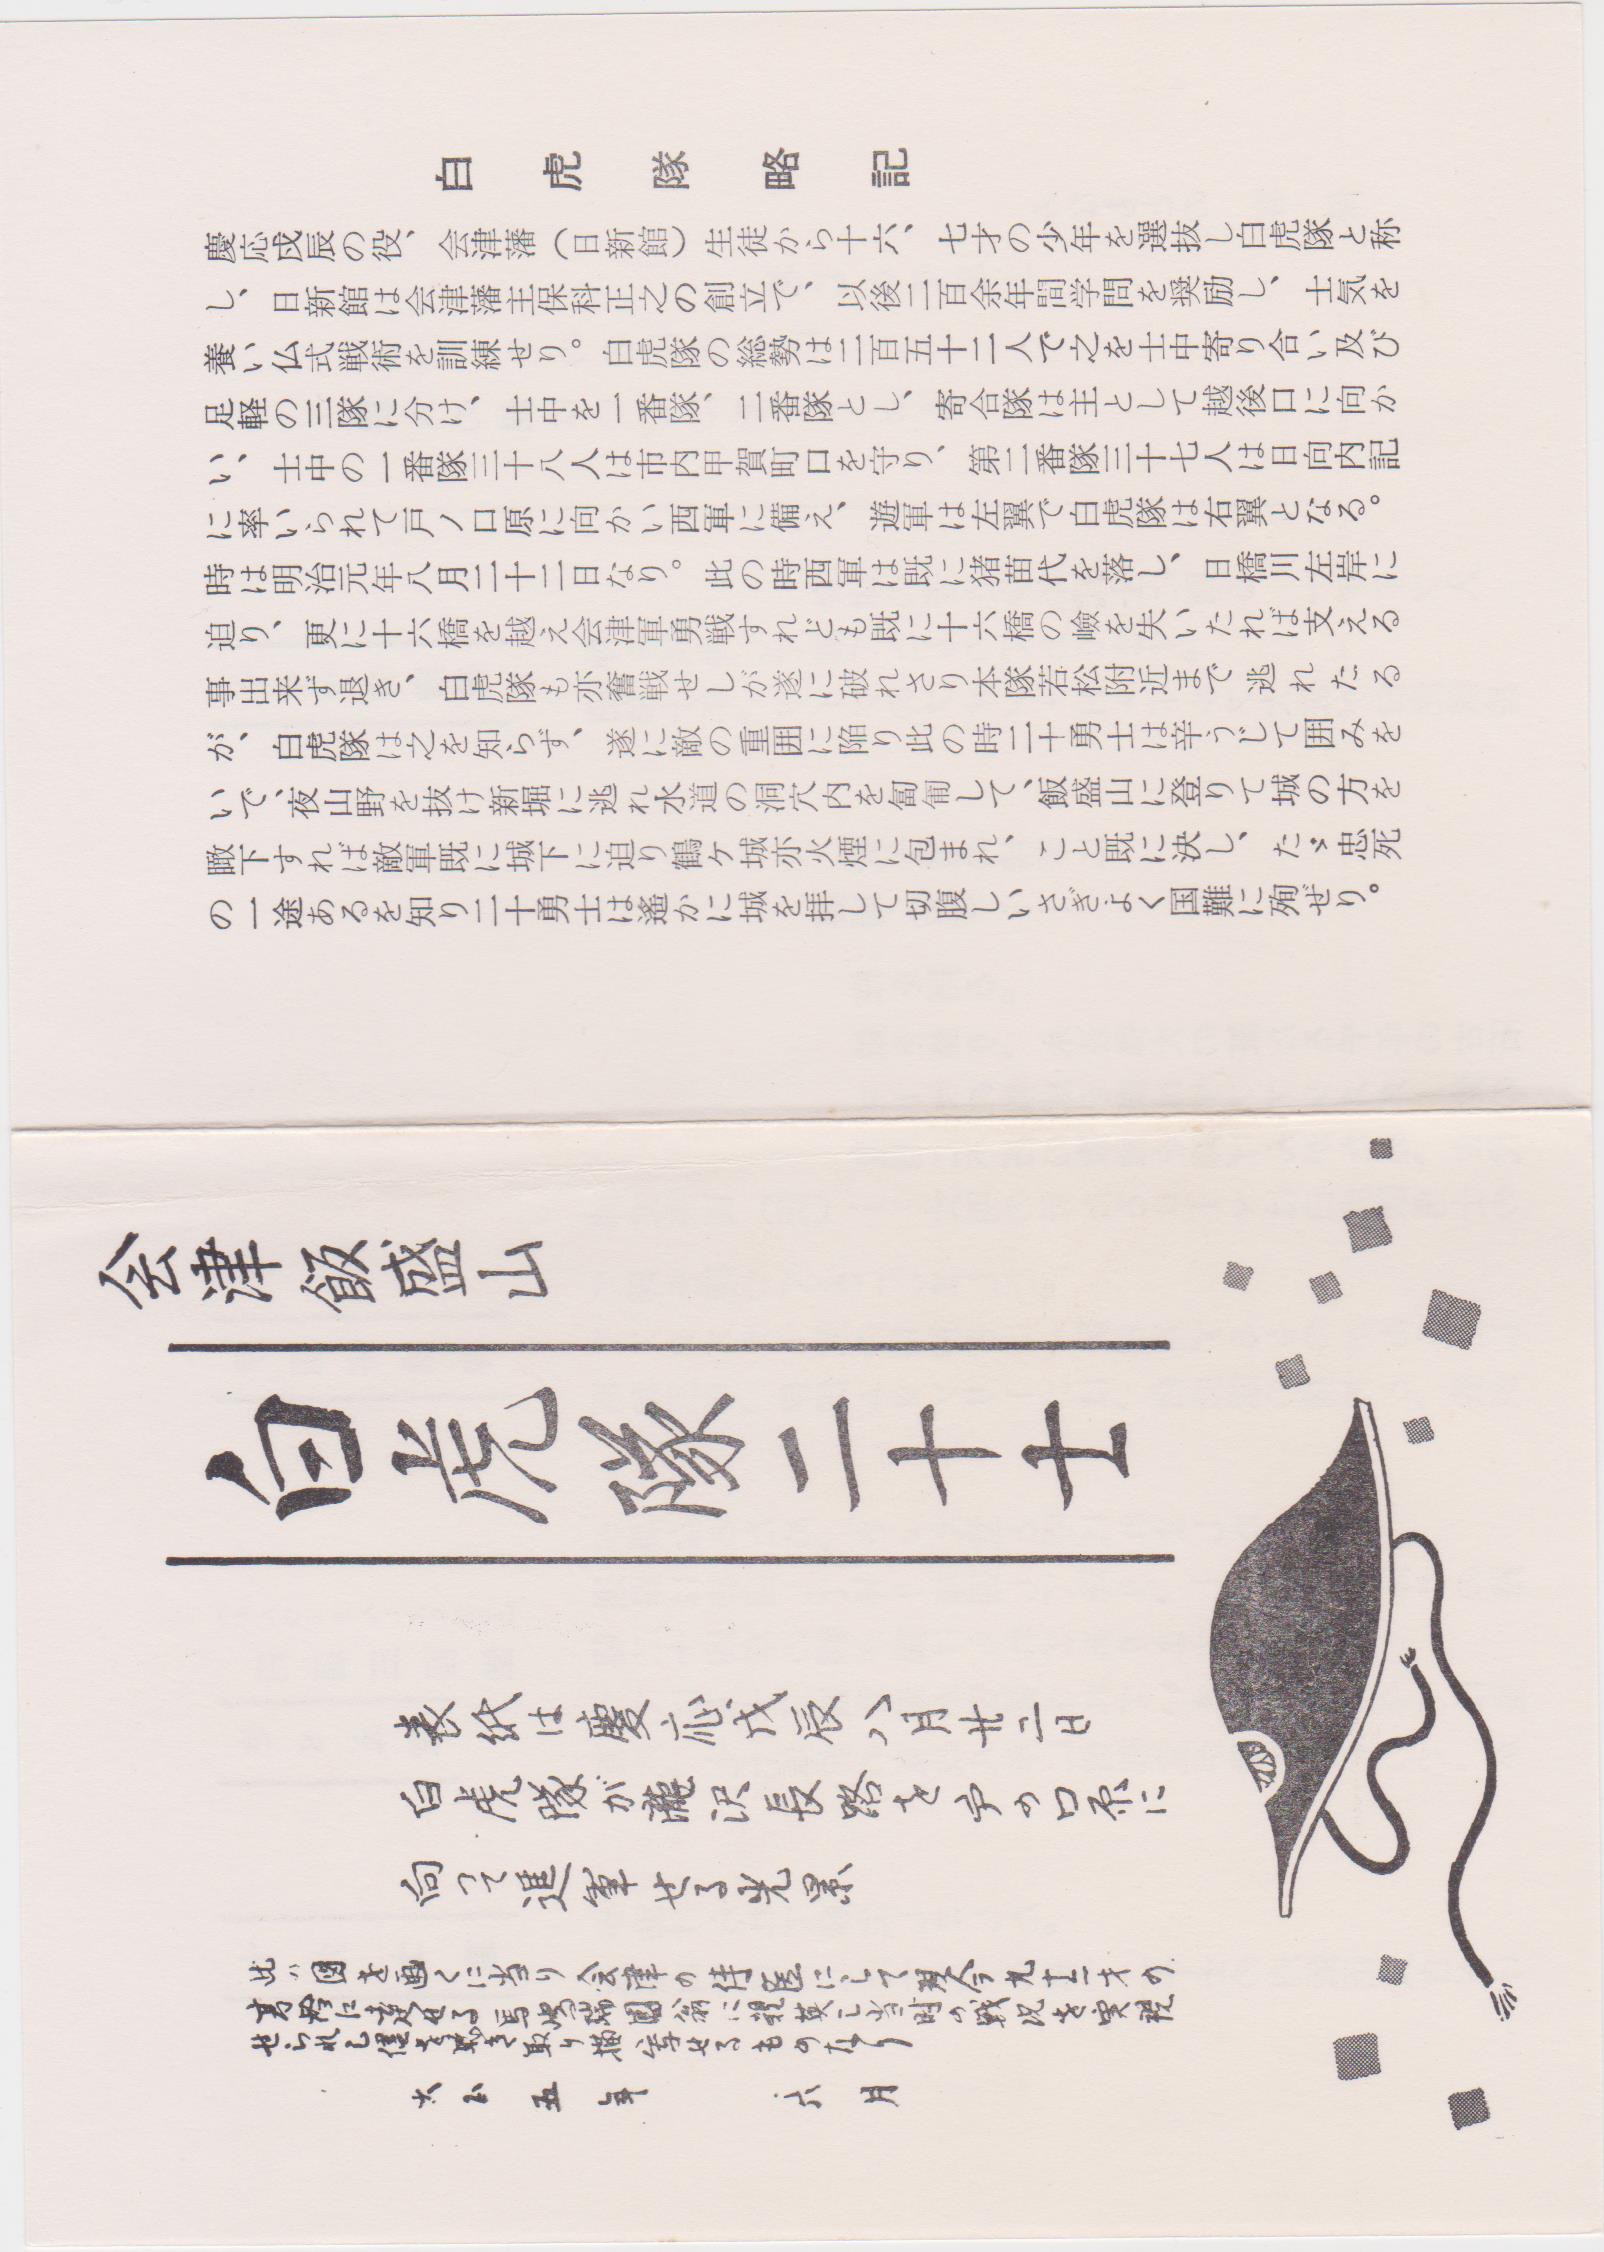 白虎隊略記
慶応戊辰の役、会津藩(日新館)生徒から十六、七才の少年を選抜し白虎隊と称
し、日新館は会津藩主保科正之の創立で、以後二百余年間学問を奨励し、士気を
養い仏式戦術を訓練せり。白虎隊の総勢は二百五十二人で之を士中寄り合い及び
足軽の三隊に分け、士中を一番隊、二番隊とし、寄合隊は主として越後口に向か
い、士中の一番隊三十八人は市内甲賀町口を守り、第二番隊三十七人は日向内記
に率いられて戸ノ口原に向かい西軍に備え、遊軍は左翼で白虎隊は右翼となる。
時は明治元年八月二十二日なり。此の時西軍は既に猪苗代を落し、日橋川左岸に
迫り、更に十六橋を越え会津軍勇戦すれども既に十六橋の嶮を失いたれば支える
事出来ず退き、白虎隊も亦奮戦せしが遂に破れさり本隊若松附近まで逃れたる
が、白虎隊は之を知らず、遂に敵の重囲に陥り此の時二十勇士は辛うじて囲みを
いで、夜山野を抜け新堀に逃れ水道の洞穴内を匍匐して、飯盛山に登りて城の方を
瞰下すれば敵軍既に城下に迫り鶴ヶ城亦火煙に包まれ、こと既に決し、たゞ忠死
の一途あるを知り二十勇士は遙かに城を拝して切腹しいさぎよく国難に殉ぜり。
会津飯盛山
白虎隊二十士
表紙は慶応戊辰八月廿二日
白虎隊が滝沢長路を戸の口原に
向って進軍せる光景
此ハ図を画くに当り会津の侍医にして現今九十二才の
高齢に達せる馬嶋瑞園翁に親炙し当時の戦況を実視
せられし儘を聞き取り描写せるものなり
大正五年 六月